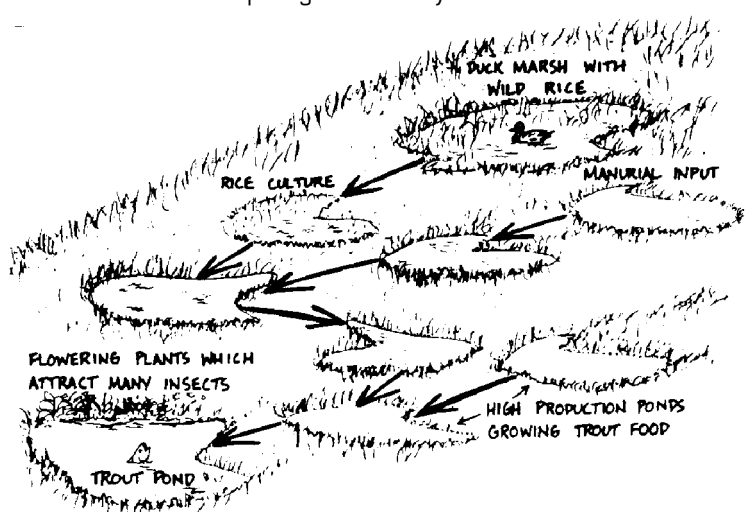 DUCK MARSH WITH
WILD RICE
RICE CULTURE
MANURIAL INPUT
FLOWERING PLANTS WHICH
ATTRACT MANY INSECTS
HIGH PRODUCTION PONDS
GROWING TROUT FOOD
TROUT POND